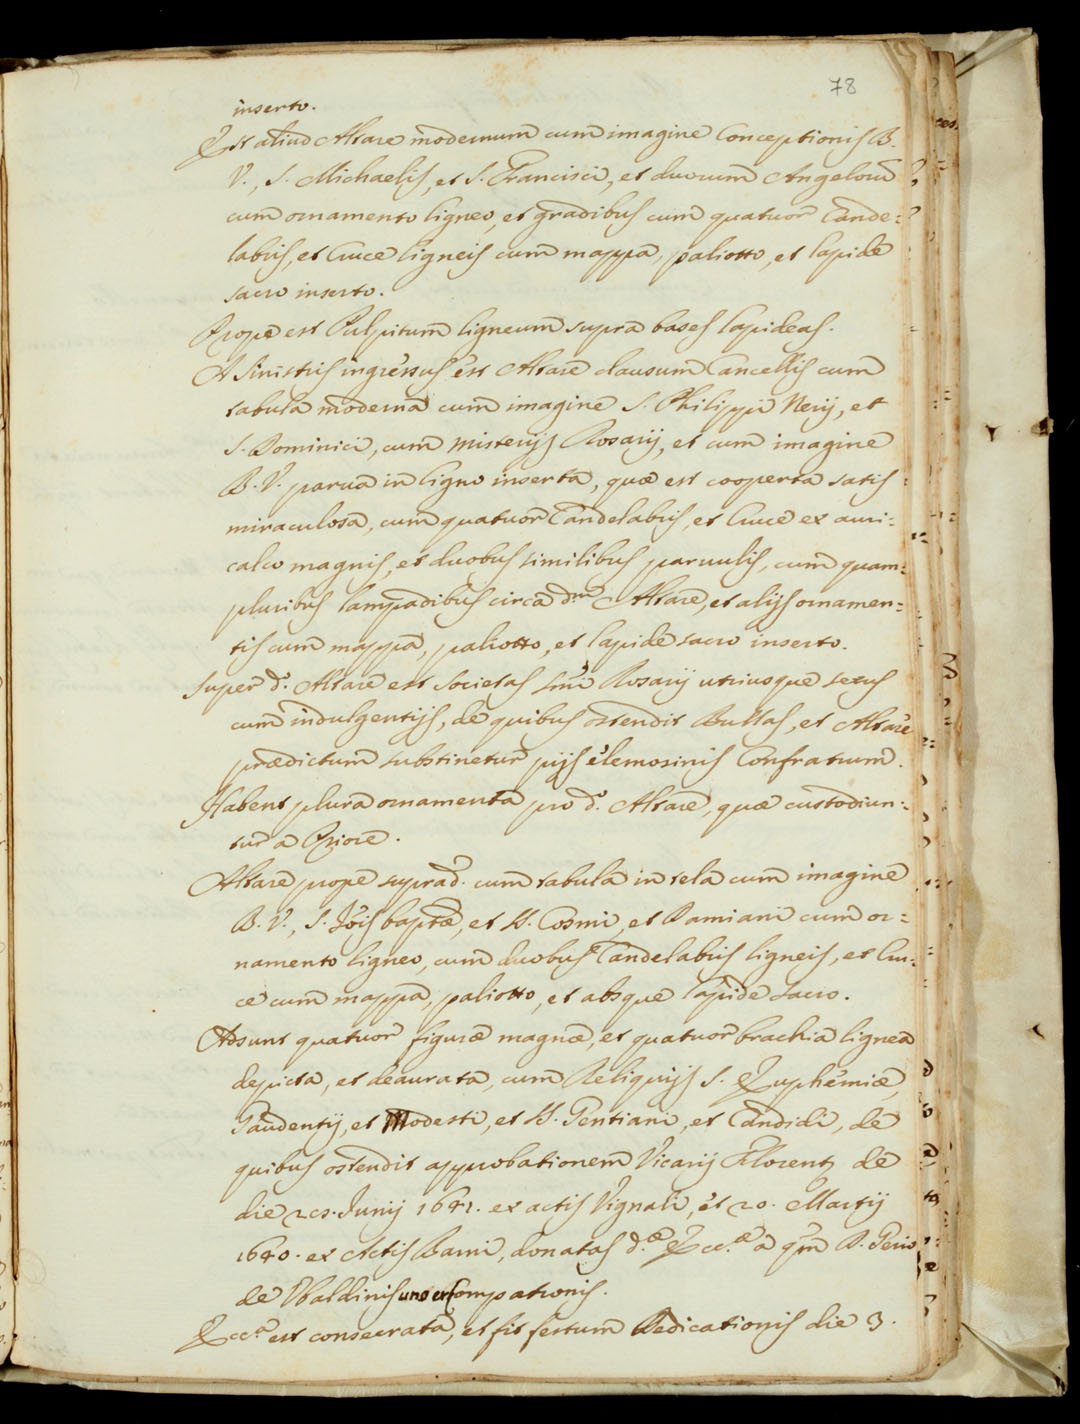 78
inserto.
Est aliud Altare modernum cum imagine Conceptionis B.
V., S. Michaelis, et S. Francisci, et duorum Angelorũ
cum ornamento ligneo, et gradibus cum quatuor Cande=
labris, et Cruce ligneis cum mappa, paliotto, et lapide
sacro inserto.
Prope est Pulpitum ligneum supra bases lapideas.
A Sinistris ingressus est Altare clausum Cancellis cum
tabula moderna cum imagine S. Philippi Nerij, et
S. Dominici, cum Misterijs Rosarij, et cum imagine
B. V. parua in ligno inserta, quæ est cooperta satis
miraculosa, cum quatuor Candelabris, et Cruce ex auri=
calco magnis, et duobus similibus paruulis, cum quam=
pluribus lampadibus circa d.m Altare, et alijs ornamen=
tis cum mappa, paliotto, et lapide sacro inserto.
Super d.o Altare est Societas Smi Rosarij utriusque sexus
cum indulgentijs, de quibus ostendit Bullas, et Altare
prædictum substinetur pijs elemosinis Confratrum.
Habent plura ornamenta pro d.o Altare, quæ custodiun=
tur a Priore.
Altare prope suprad. cum tabula in tela cum imagine
B. V., S. Jois baptæ, et SS. Cosmi, et Damiani cum or=
namento ligneo, cum duobus Candelabris ligneis, et Cru=
ce cum mappa, paliotto, et absque lapide sacro.
Adsunt quatuor figuræ magnæ, et quatuor brachia lignea
depicta, et deaurata, cum Reliquijs S. Euphemiæ,
Gaudentij, et Modesti, et SS. Gentiani, et Candidi, de
quibus ostendit approbationem Vicarij Florent de
die Junij 1641. ex actis Vignali, et 20. Martij
1640. ex Actis Barni, donatas d.æ Ecc.æ a qm D. Perio
de Ubaldinis
Ecc.a est consecrata, et fit festum Dedicationis die 3.